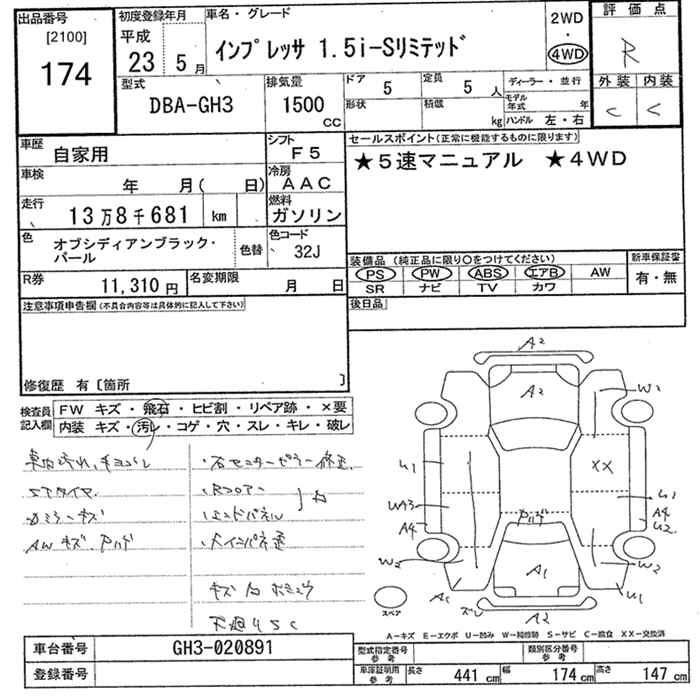 出品番号
[2100]
174
初度登録年月
平成
23 5 月
車名・グレード
インプレッサ 1.5i-Sリミテッド
2WD
・
4WD
評価点
R
外装 内装
C C
型式
DBA-GH3
排気量
1500
CC
ドア
5
定員
5 人
形状
積載
kg
ディーラー・並行
モデル年式 年
ハンドル 左・右
車歴
自家用
シフト
F5
車検
年 月( 日)
冷房
AAC
走行
13万8千681 km
燃料
ガソリン
色
オブシディアンブラック・
パール
色替
色コード
32J
R券
11,310 円
名変期限
月 日
セールスポイント(正常に機能するものに限ります)
★5速マニュアル ★4WD
装備品 (純正品に限り〇をつけてください)
PS PW ABS エアB AW
SR ナビ TV カワ
新車保証書
有・無
後日品
注意事項申告欄(不具合内容等は具体的に記入して下さい)
修復歴 有〔箇所 〕
検査員
記入欄
FW キズ・飛石・ヒビ割・リペア跡・×要
内装 キズ・汚レ・コゲ・穴・スレ・キレ・破レ
A2
A2
W2
U1
XX
U1
A4
U2
A4
W2
W2
A1
A1
U1
A2
スペア
A-キズ E-エクボ U-凹み W-補修跡 S-サビ C-腐食 XX-交換済
車台番号
GH3-020891
登録番号
型式指定番号
参考
類別区分番号
参考
車庫証明用
参考
長さ 441 cm 幅 174 cm 高さ 147 cm